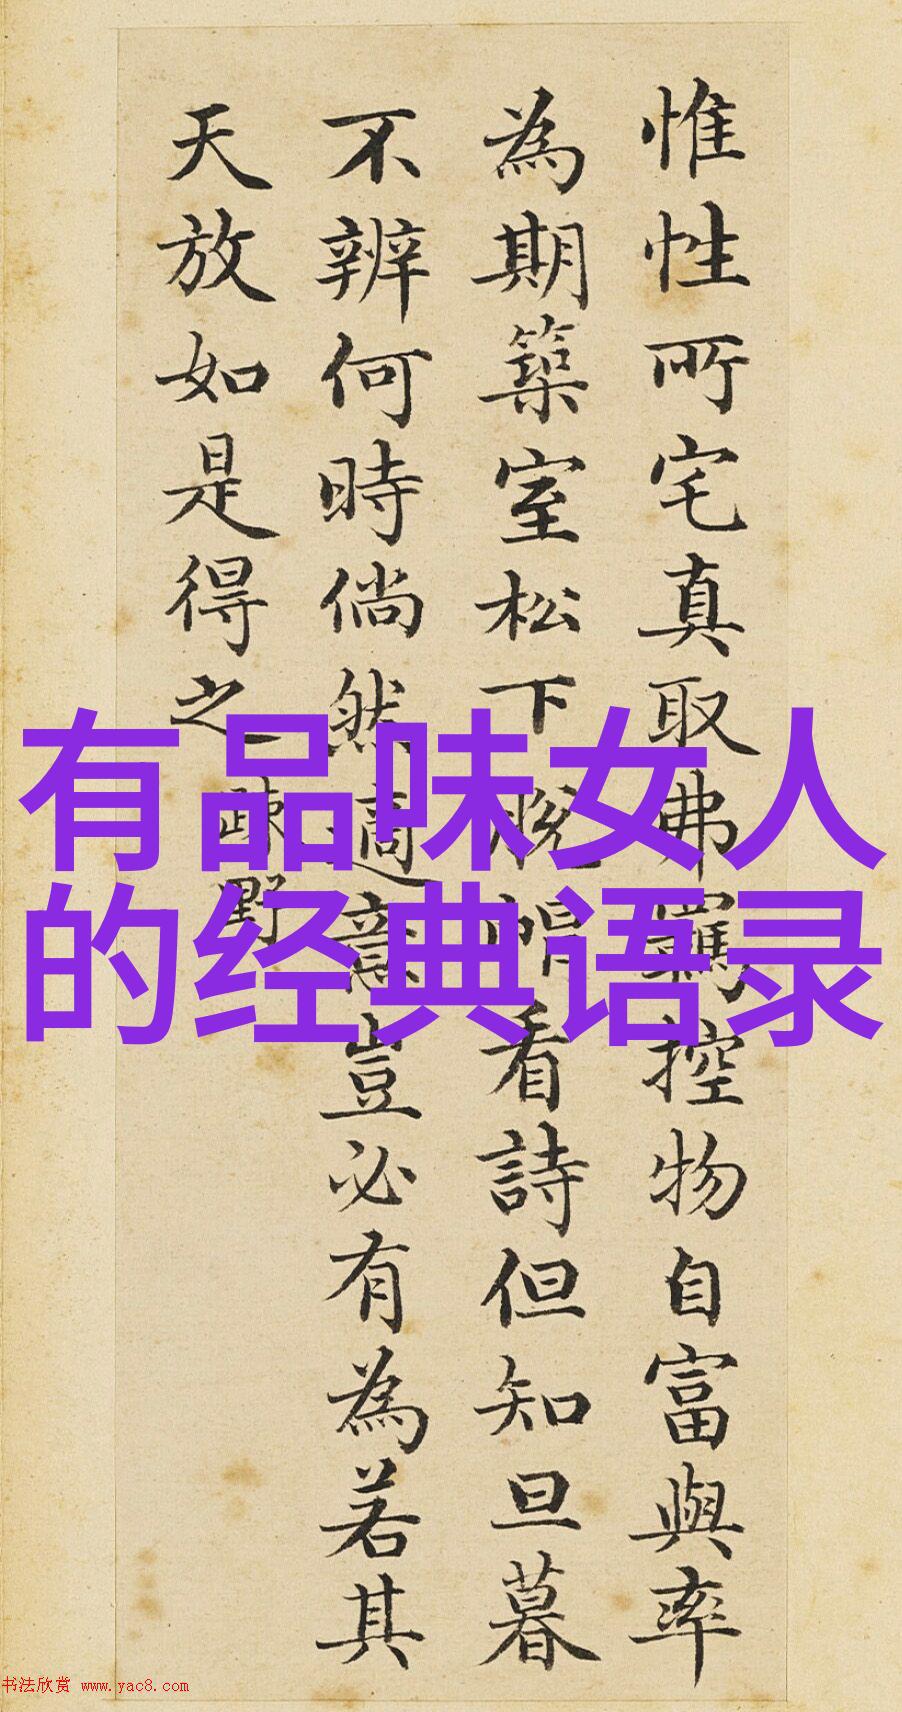 惟性所宅真取弗羈控物自富與率
為期築室松下脫帽看詩但知旦暮
不辨何時倘然適意豈必有為若其
天放如是得之
疎野
有品味女人
的经典语录
书法欣赏 www.yac8.com